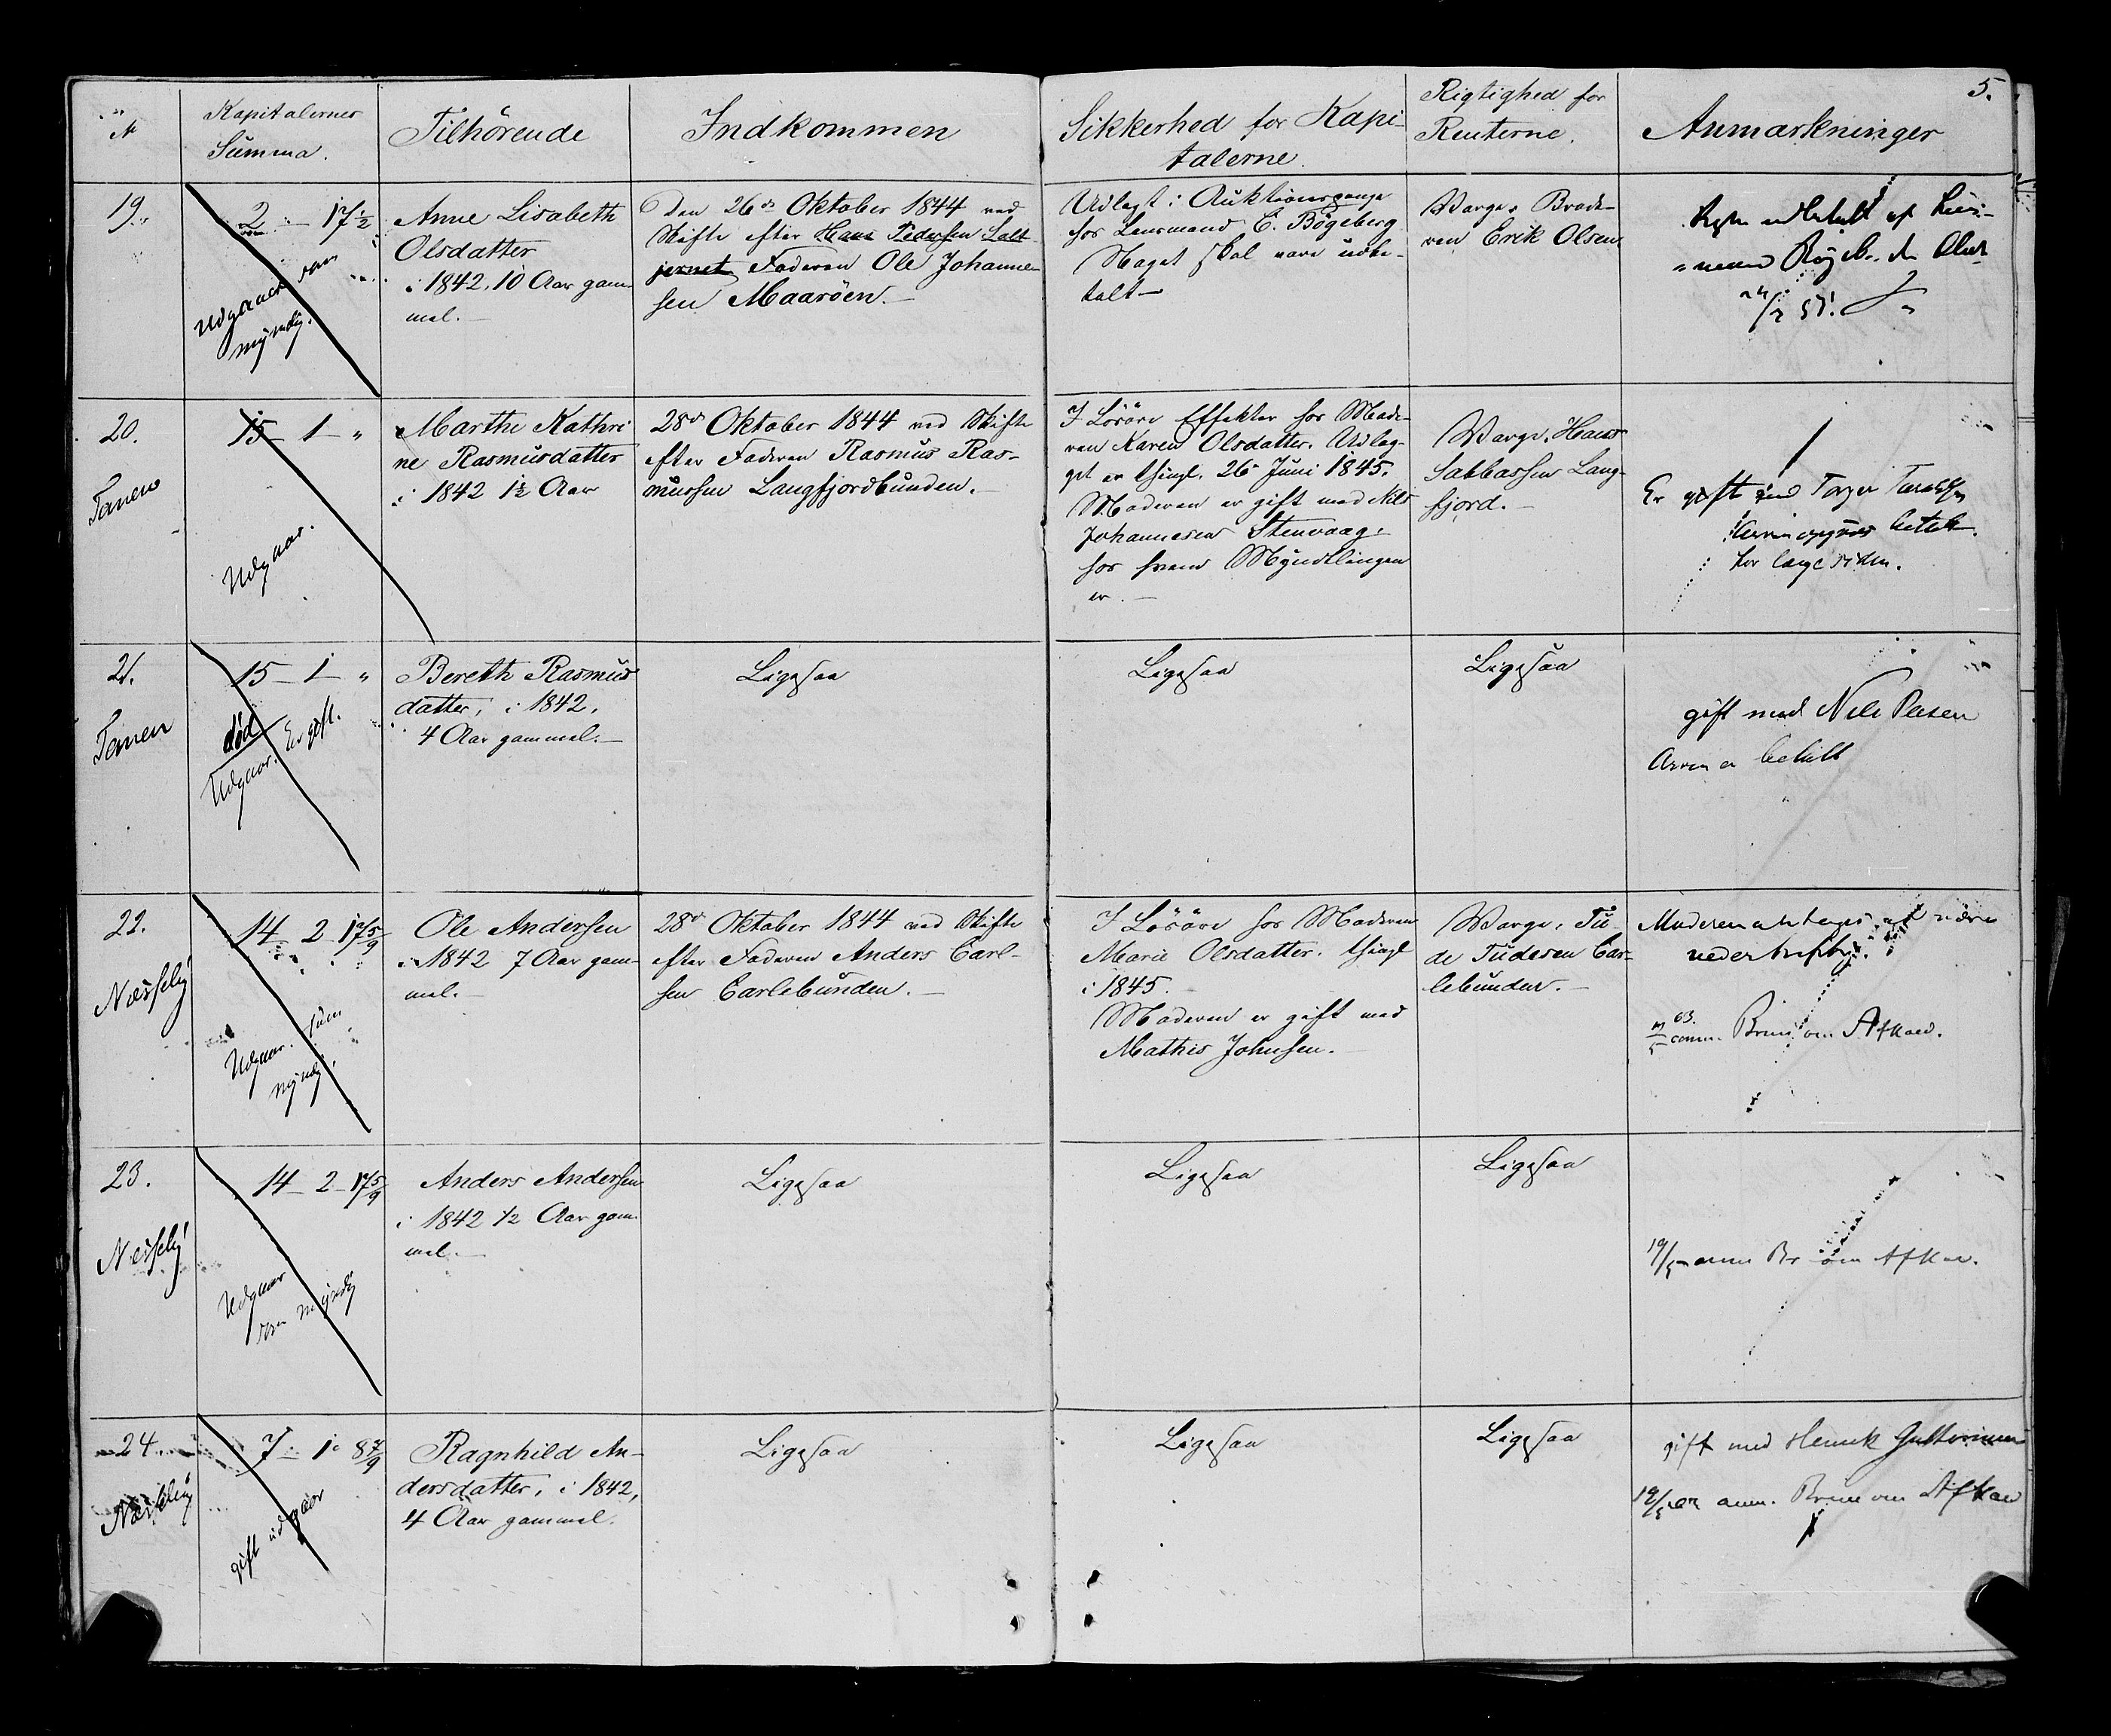 5.
№
Kapitalernes
Summa.
Tilhörende
Indkommen
Sikkerhed for Kapi-
talerne.
Rigtighed for
Renterne.
Anmærkninger
19.
2 - 17½
Udgaaer som
myndig.
Anne Lisabeth
Olsdatter
i 1842, 10 Aar gam-
mel.
Den 26de Oktober 1844 ved
Skifte efter Hans Pedersen Salt
jernet Faderen Ole Johanne-
sen Maaröen.
Udlagt i Auktionspenge
hos Lensmand C. Bögeberg
Noget skal være udbe-
talt
Værge, Brode-
ren Erik Olsen
udbetalt af
20.
Tanen
15 - 1 - "
Udgaar.
Marthe Kathri
ne Rasmusdatter
i 1842 1½ Aar
28de Oktober 1844 ved Skifte
efter Faderen Rasmus Ras-
mussen Langfjordbunden.
I Lösöre Effekter hos Mode-
ren Karen Olsdatter. Udlæg-
get er thingl. 26 Juni 1845.
Moderen er gift med Nils
Johannesen Stenvaag,
hos hvem Myndlingen
er.
Værge, Hans
Sabbassen Lang-
fjord.
Er gift med
betalt
for længe siden.
21.
Tanen
15 - 1 - "
död
Er gift.
Udgaar.
Bereth Rasmus
datter, i 1842,
4 Aar gammel.
Ligesaa
Ligesaa
Ligesaa
gift med Nils
Arven er betalt
22.
Næsseby
14 - 2 - 17 5/9
Udgaar. som
myndig.
Ole Andersen
i 1842 7 Aar gam-
mel.
28de Oktober 1844 ved Skifte
efter Faderen Anders Carl-
sen Carlebunden.
I Lösöre hos Moderen
Marie Olsdatter. thingl
i 1845.
Moderen er gift med
Mathis Johnsen.
Værge, Tu-
de Tudesen Car-
lebunden.
Moderen antages at være
63.
om Afkald.
23.
Næsseby
14 - 2 - 17 5/9
Udgaar
som myndig
Anders Andersen
i 1842 ½ Aar gam-
mel.
Ligesaa
Ligesaa
Ligesaa
19/5 om Afkal.
24.
Næsseby
7 - 1 - 8 7/9
gift udgaar
Ragnhild An-
dersdatter, i 1842,
4 Aar gammel.
Ligesaa
Ligesaa
Ligesaa
gift med Henrik Guttormsen
19/5 om Afkald